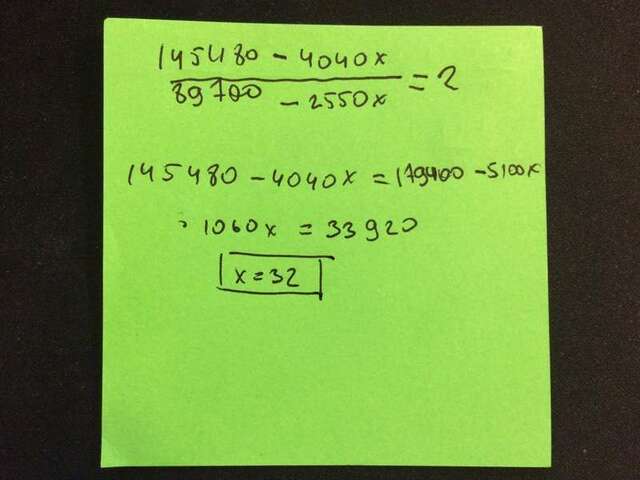 145480 - 4040x
89700 - 2550x = 2
145480 - 4040x = 179400 - 5100x
1060x = 33920
x = 32